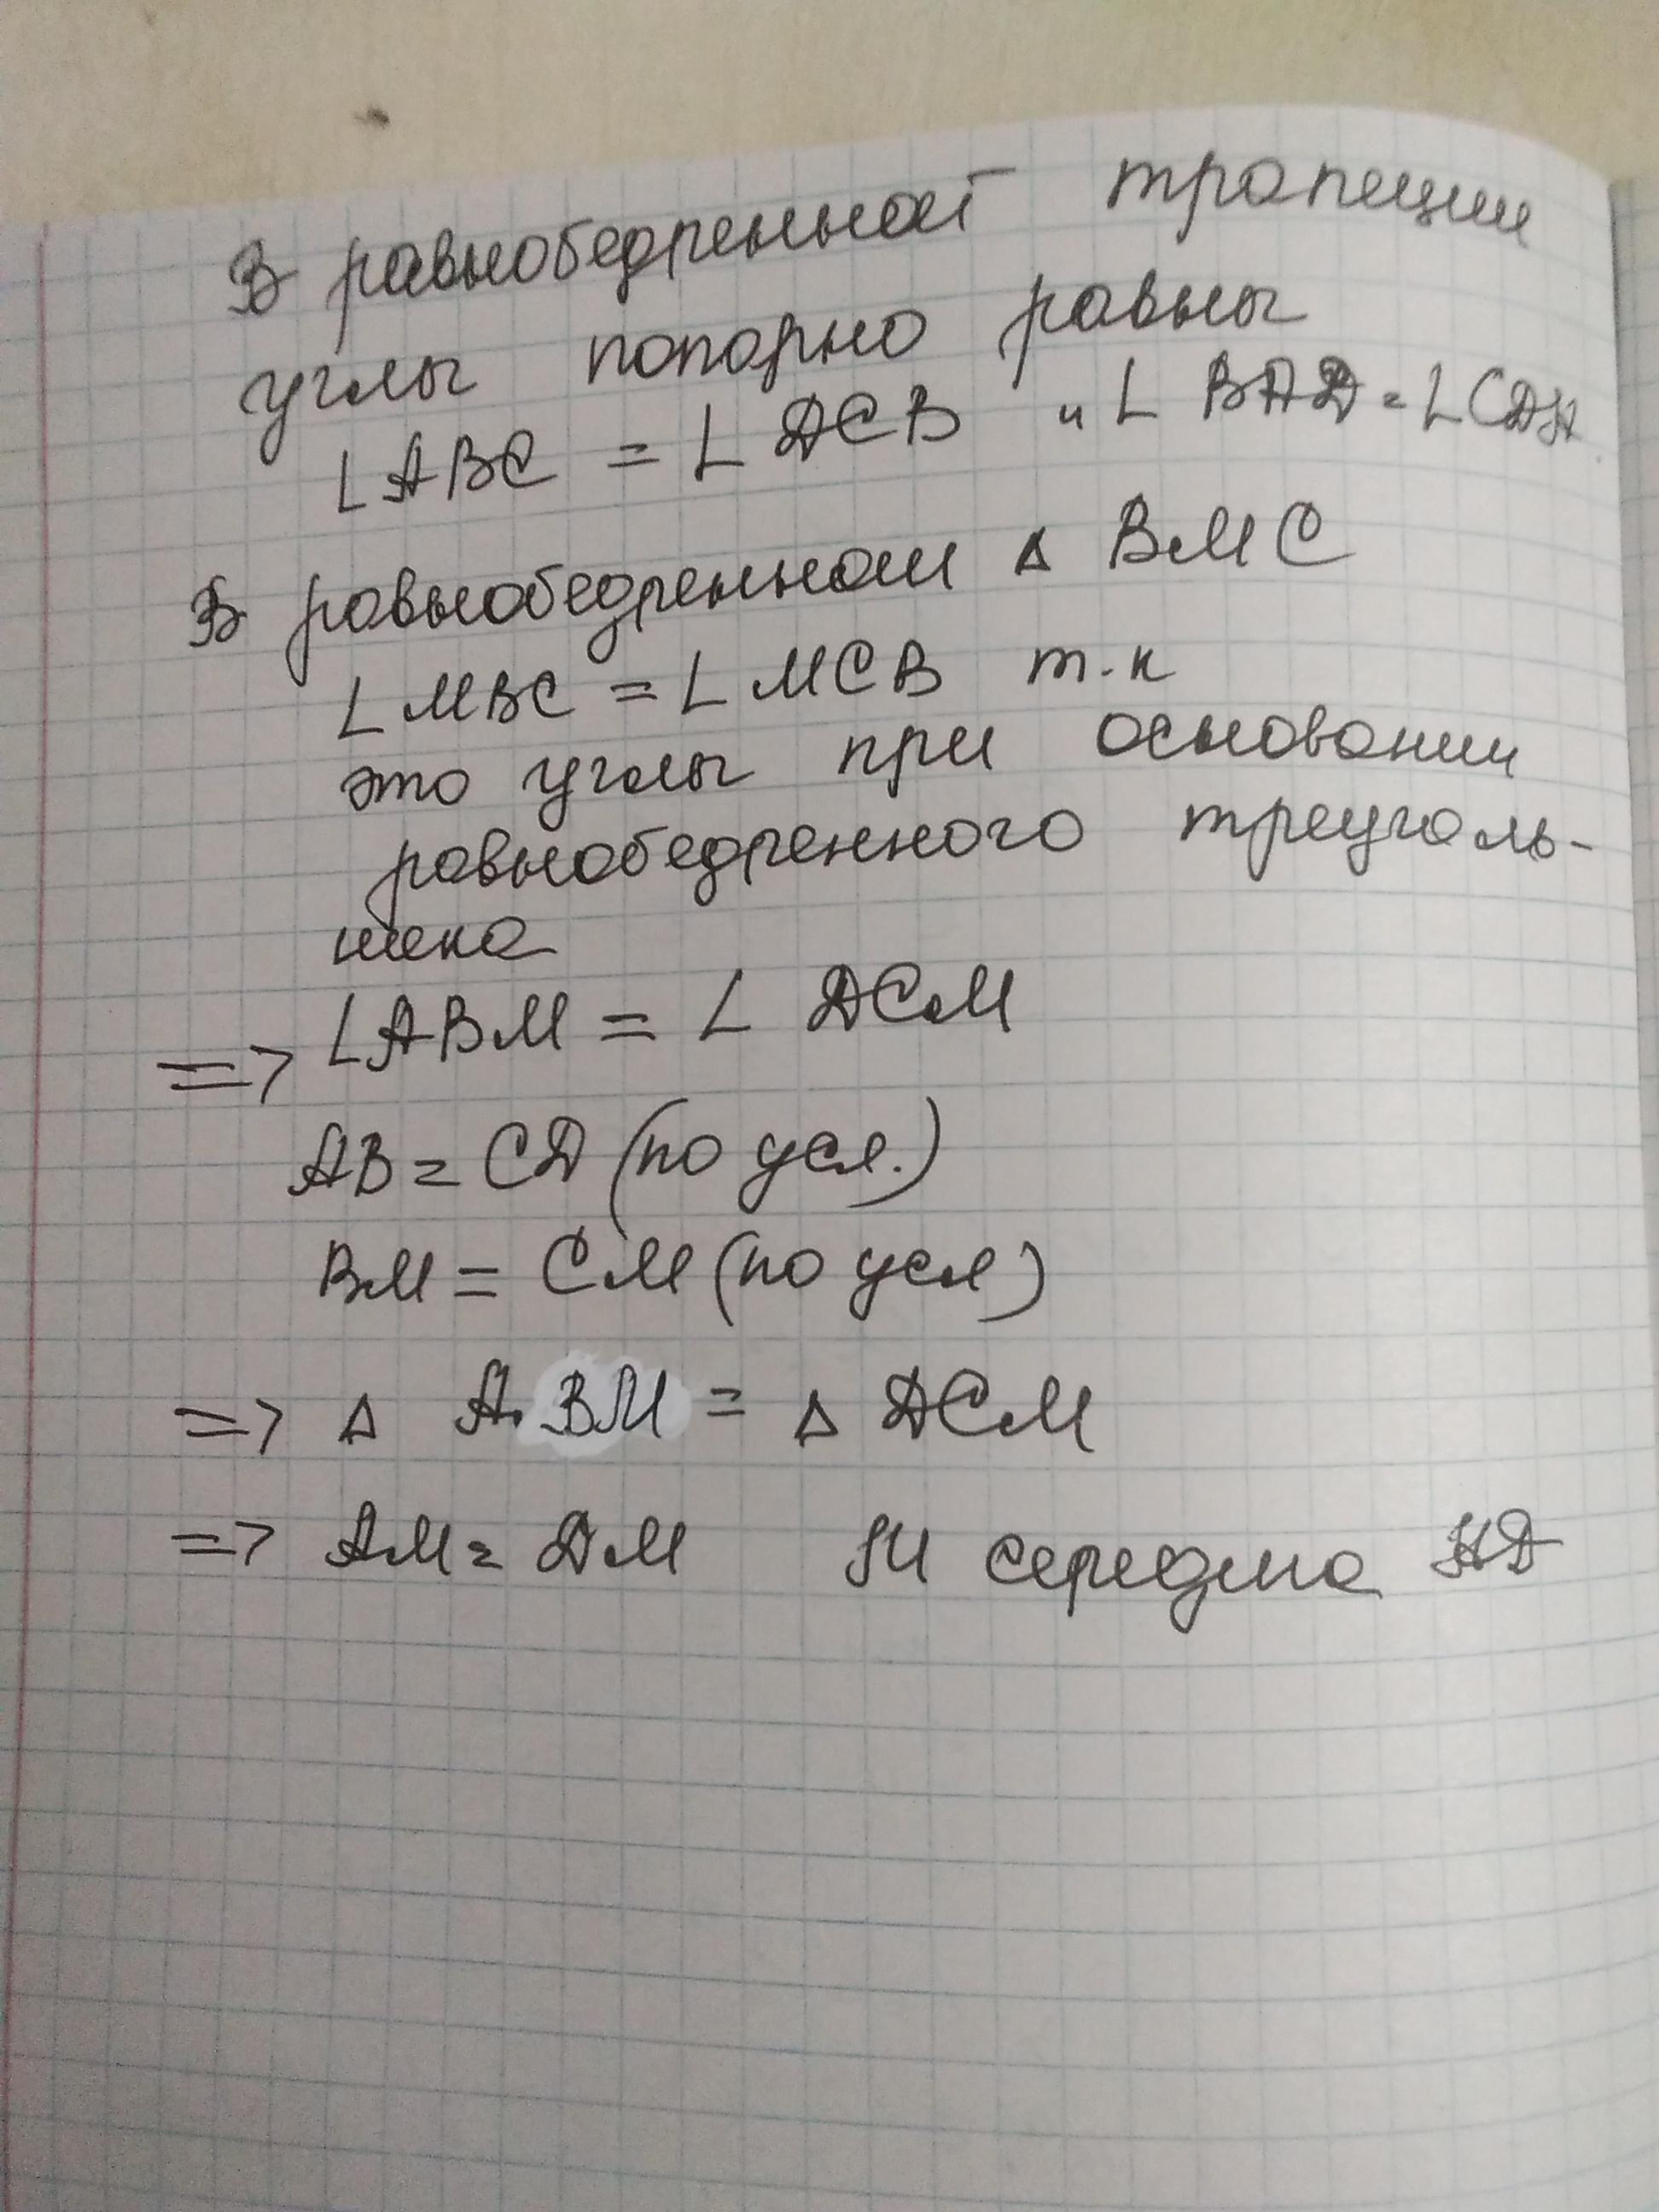 В равнобедренной трапеции
углы попарно равны
∠ABC = ∠DCB и ∠BAD = ∠CDA
В равнобедренном Δ BMC
∠MBC = ∠MCB т.к
это углы при основании
равнобедренного треуголь-
ника
=> ∠ABM = ∠DCM
AB = CD (по усл.)
BM = CM (по усл)
=> Δ ABM = Δ DCM
=> AM = DM M середина AD